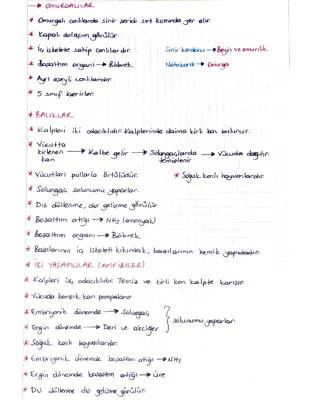 → OMURGALILAR
* Omurgalı canlılarda sinir şeridi sırt kısmında yer alır.
* Kapalı dolaşım görülür.
* İç iskelete sahip canlılardır.
Sinir kordonu → Beyin ve omurilik
* Boşaltım organı → Böbrek
Notokord → Omurga
* Ayrı eşeyli canlılardır.
* 5 sınıf içerirler.
* BALIKLAR
* Kalpleri iki odacıklıdır. Kalplerinde daima kirli kan bulunur.
* Vücutta kirlenen kan → Kalbe gelir → Solungaçlarda temizlenir → Vücuda dağılır.
* Vücutları pullarla örtülüdür.
* Soğuk kanlı hayvanlardır.
* Solungaç solunumu yaparlar.
* Dış döllenme, dış gelişme görülür.
* Boşaltım atığı → NH₃ (amonyak)
* Boşaltım organı → Böbrek
* Bazılarının iç iskeleti kıkırdak, bazılarının kemik yapıdadır.
* İKİ YAŞAMLILAR (AMFİBİLER)
* Kalpleri üç odacıklıdır. Temiz ve kirli kan kalpte karışır.
* Vücuda karışık kan pompalanır.
* Embriyonik dönemde → Solungaç
* Ergin dönemde → Deri ve akciğer
solunumu yaparlar.
* Soğuk kanlı hayvanlardır.
* Embriyonik dönemde boşaltım atığı → NH₃
* Ergin dönemde boşaltım atığı → Üre
* Dış döllenme dış gelişme görülür.